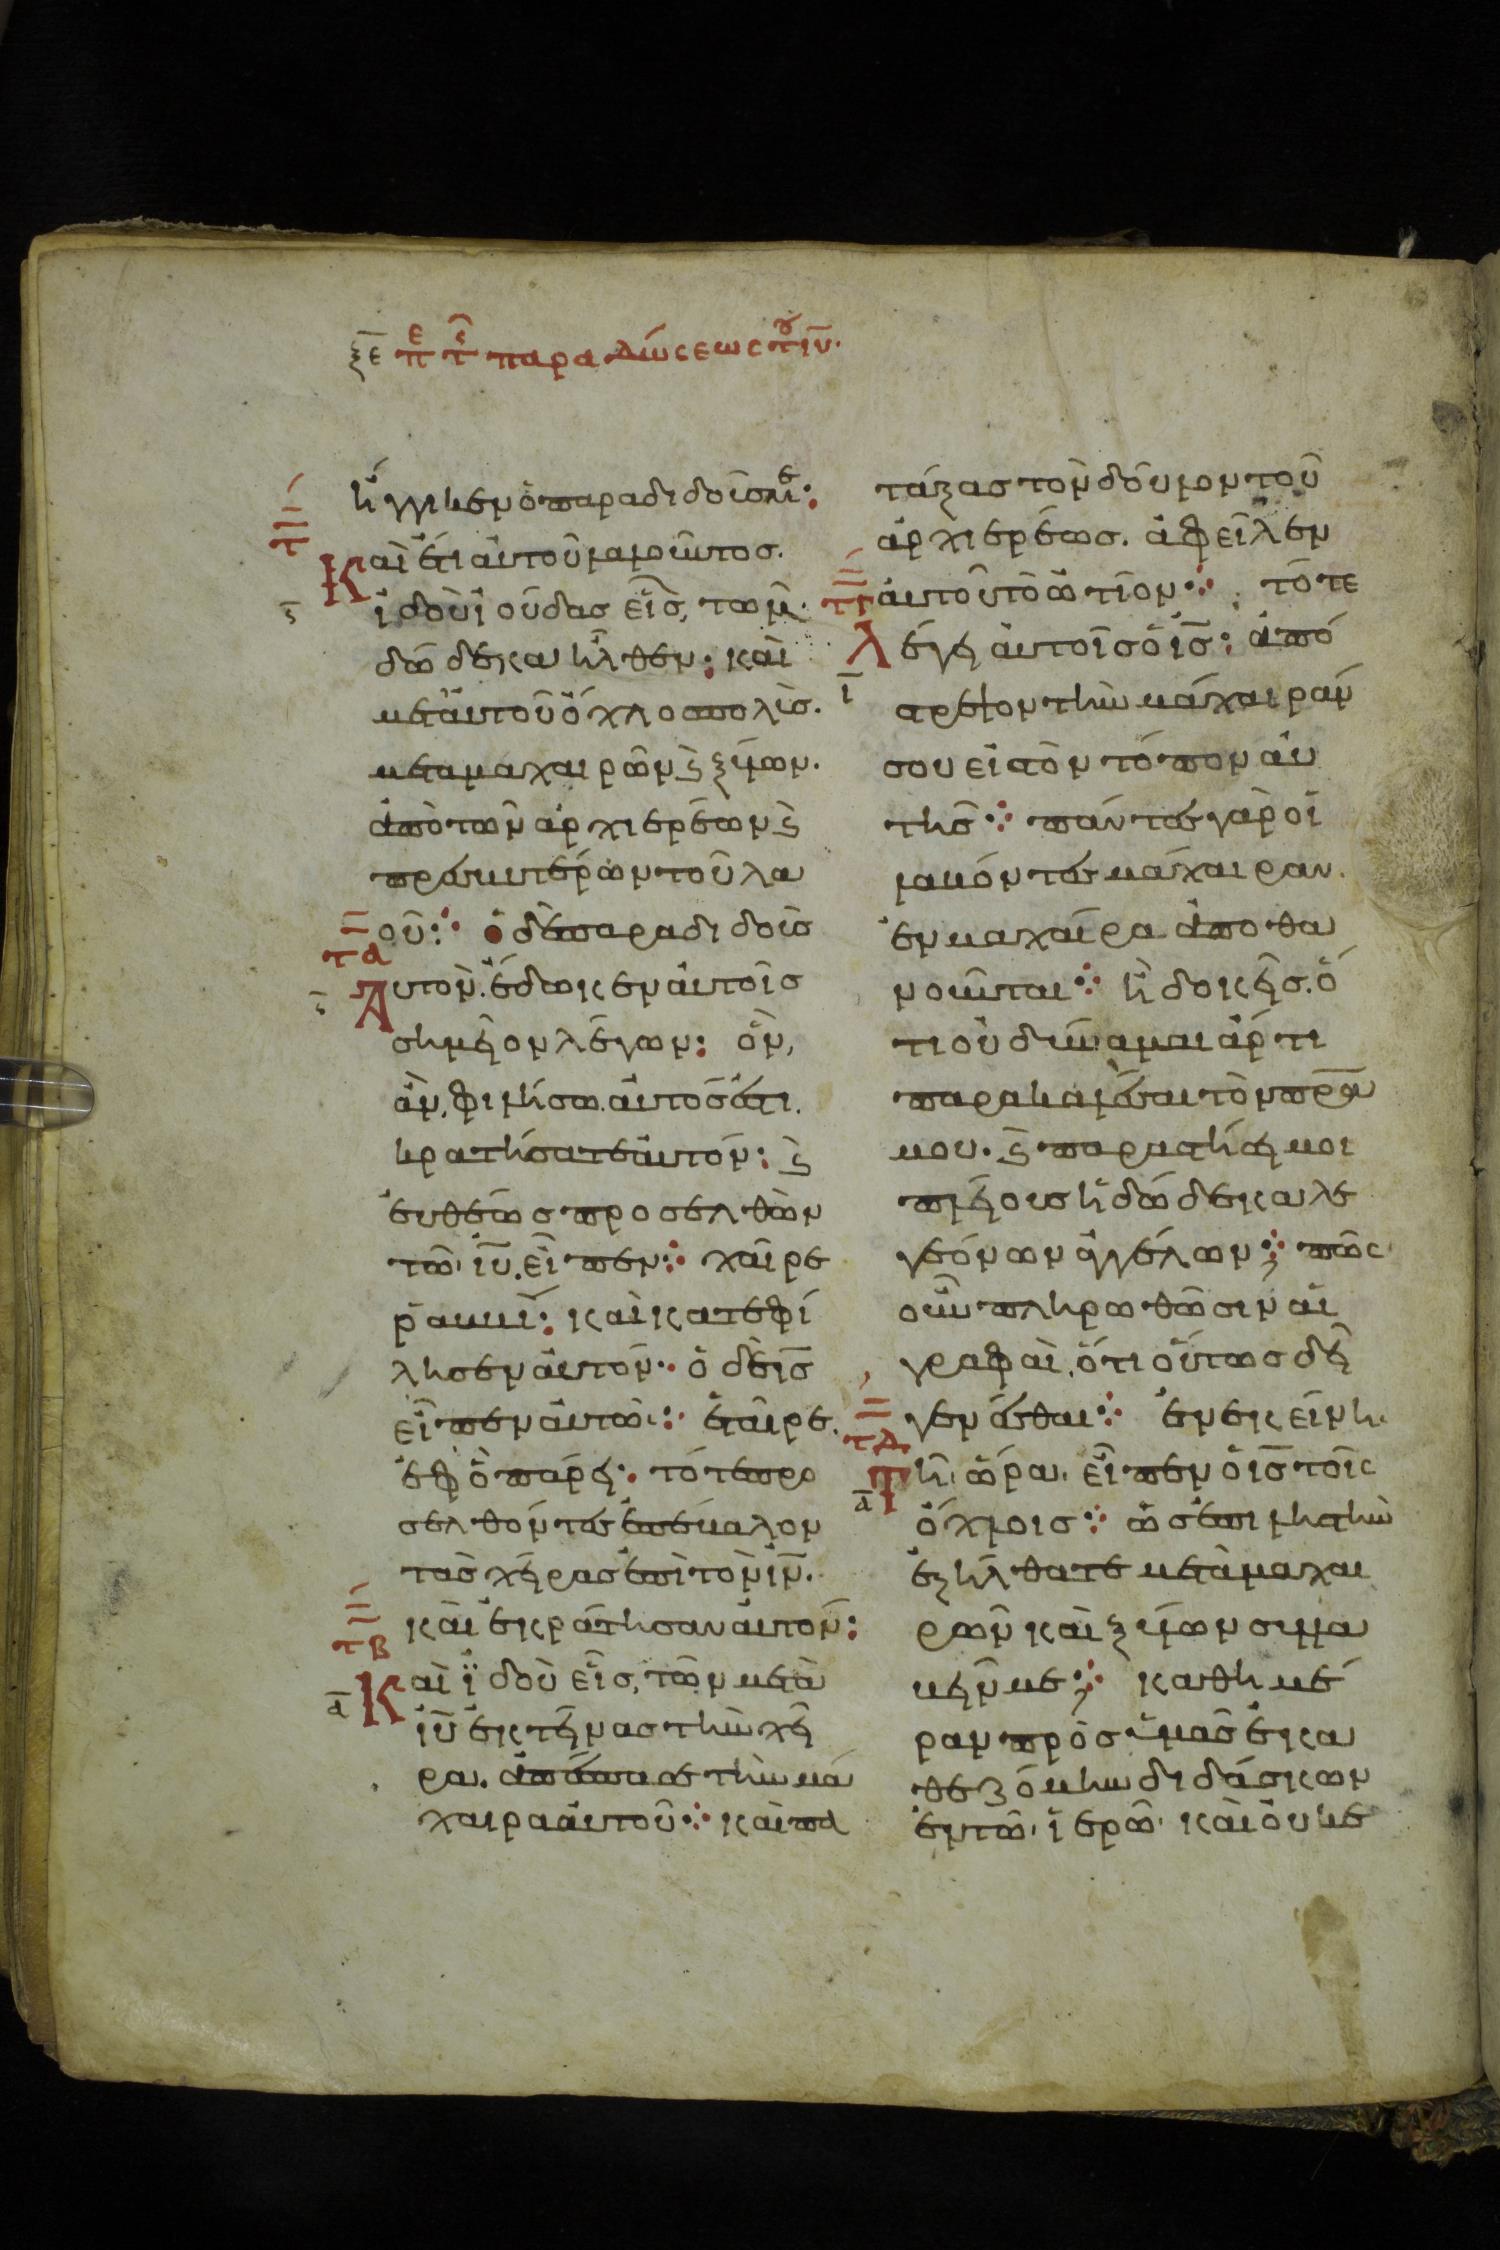 ξε περὶ τῆς παραδώσεως τοῦ ιυ.
ἤγγικεν ὁ παραδιδοῖς με:
τ
Καὶ ἔτι αὐτοῦ λαλοῦντος.
ς
ἰδοὺ ἰούδας εἷς, τῶν
δώδεκα ἦλθεν: καὶ
μετ αὐτοῦ ὄχλος πολὶς.
μετα μαχαιρῶν ϗ ξύλων.
ἀπὸ τῶν ἀρχιερέων ϗ
πρεσβυτέρων τοῦ λα
οῦ: ὁ δὲ παραδιδοὶς
τα
ς
Αυτὸν. ἔδωκεν αὐτοῖς
σημεῖον λέγων: ὃν,
ἂν, φιλήσω. αὐτός ἐστι.
κρατήσατε αὐτόν: ϗ
ἐυθέως προσελθὼν
τῶ ιυ. εἶπεν: χαῖρε
ῥαββί: καὶ κατεφί
λησεν αὐτόν: ὁ δὲ ις
εἶπεν αὐτῶ: ἑταῖρε.
ἐφ ὃ πάρει: τότε προ
σελθόντες ἐπέβαλον
τὰς χεῖρας ἐπὶ τὸν ιν.
καὶ ἐκράτησαν αὐτόν:
τβ
Καὶ ἰδοὺ εἷς, τῶν μετὰ
α
ιυ ἐκτείνας τὴν χεῖ
ρα. ἀπέσπασε τὴν μά
χαιρα αὐτοῦ: καὶ πα
τάξας τὸν δοῦλον τοῦ
ἀρχιερέως. ἀφεῖλεν
αὐτοῦ τὸ ὠτίον: τότε
τγ
Λέγει αὐτοῖς ὁ ις: ἀπό
ι
στρεψον τὴν μάχαιράν
σου εἰς τὸν τόπον αὐ
τῆς: πάντες γὰρ οἱ
λαβόντες μάχαιραν.
ἐν μαχαίρα ἀποθα
νοῦνται: ἢ δοκεῖς. ὅ
τι οὐ δύναμαι ἄρτι
παρακαλέσαι τὸν πρα
μου. ϗ παραστήσει μοι
πλείους ἢ δώδεκα λε
γεόνων ἀγγέλων: πῶς
οὖν πληρωθῶσιν αἱ
γραφαὶ, ὅτι οὕτως δεῖ
γενέσθαι: ἐν ἐκείνη
τδ
Τῆ ὥρα. εἶπεν ὁ ις τοῖς
α
ὄχλοις: ὡς ἐπι ληστὴν
ἐξήλθατε μετὰ μαχαι
ρῶν καὶ ξύλων συλλα
βεῖν με: καθημέ
ραν πρὸς ὑμᾶς ἐκα
θεζόμην διδάσκων
ἐν τῶ ἱερῶ καὶ ὀυκ ἐ